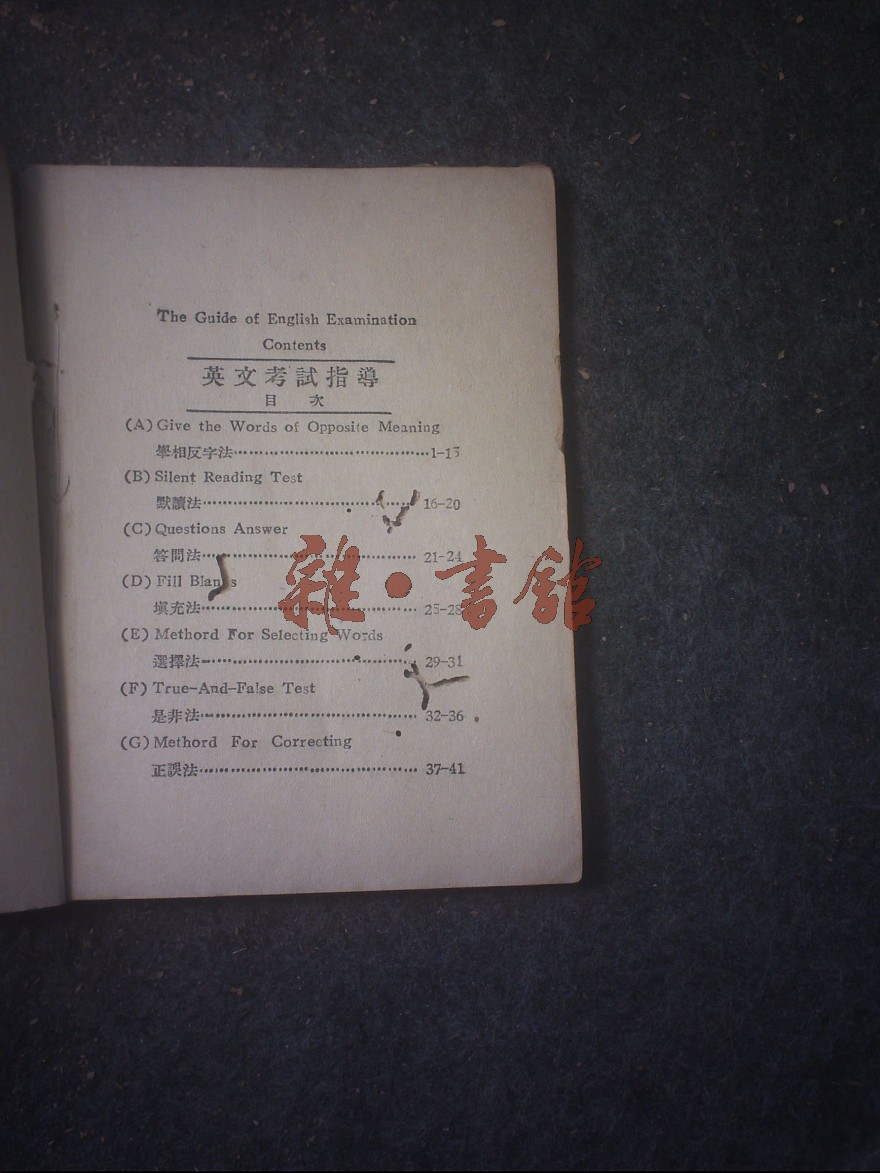 The Guide of English Examination
Contents
英文考試指導
目 次
(A) Give the Words of Opposite Meaning
舉相反字法⋯⋯⋯⋯⋯⋯⋯⋯⋯⋯⋯⋯1-15
(B) Silent Reading Test
默讀法⋯⋯⋯⋯⋯⋯⋯⋯⋯⋯⋯⋯ 16-20
(C) Questions Answer
答問法⋯⋯⋯⋯⋯⋯⋯⋯⋯⋯⋯⋯ 21-24
(D) Fill Blanks
填充法⋯⋯⋯⋯⋯⋯⋯⋯⋯⋯⋯⋯ 25-28
(E) Methord For Selecting Words
選擇法⋯⋯⋯⋯⋯⋯⋯⋯⋯⋯⋯⋯ 29-31
(F) True-And-False Test
是非法⋯⋯⋯⋯⋯⋯⋯⋯⋯⋯⋯⋯ 32-36
(G) Methord For Correcting
正誤法⋯⋯⋯⋯⋯⋯⋯⋯⋯⋯⋯⋯ 37-41
雜·書館